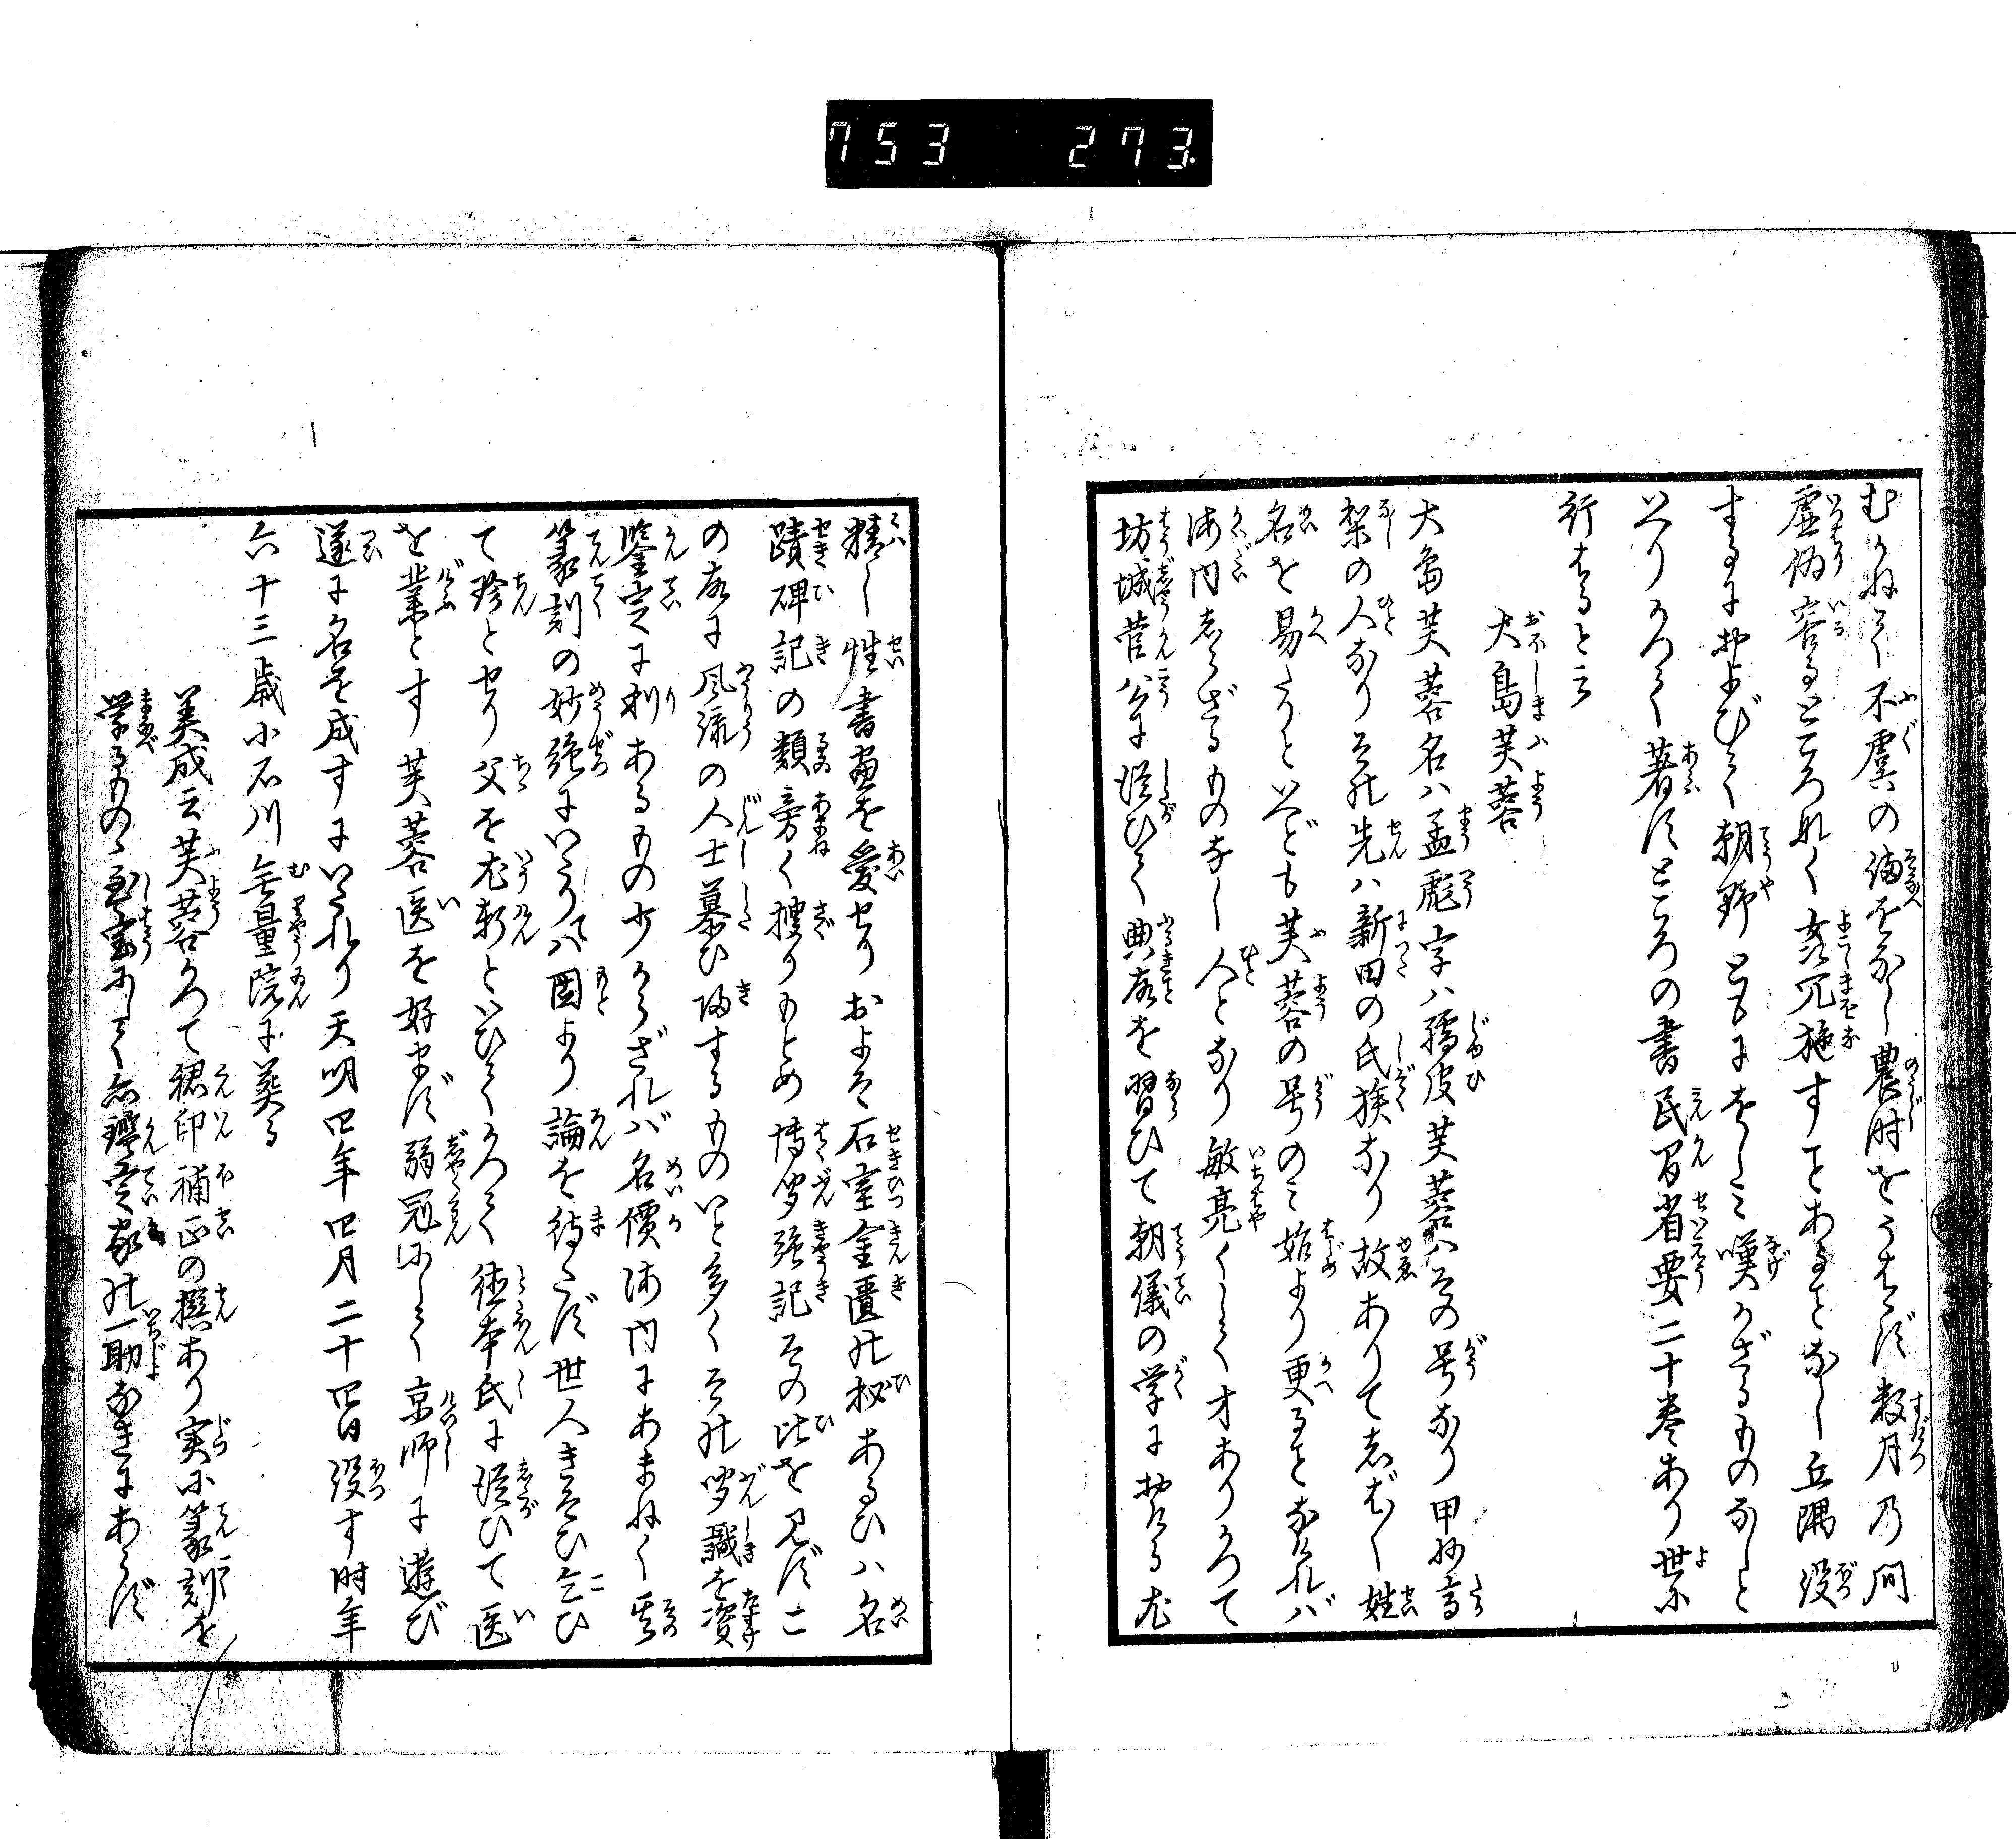 753 273.
むかねて不虞の備をなし農時をうたがはず数月乃間
虚偽容るところなく姦冗施すことあることなし丘隅没
するにおよびて朝野ともにをしミ嘆かざるものなしと
いへりかつて著すところの書民間省要二十巻あり世に
行はると云
大島芙蓉
大島芙蓉名ハ孟彪字ハ孺皮芙蓉ハその号なり甲州高
梨の人なりその先ハ新田の氏族なり故ありてしば〱姓
名を易たりといへども芙蓉の号のミ始より更ることなければ
海内しらざるものなし人となり敏亮くして才ありかつて
坊城菅公に従ひて典故を習ひて朝儀の学における尤
精し性書画を愛せりおよそ石室金匱の秘あるひハ名
蹟碑記の類旁く捜りもとめ博聞強記その比を見ずこ
の故に風流の人士慕ひ帰するものいと多くその聞識を資
鑒定に利あるもの少からざれバ名價海内にあまねく其
篆刻の妙強にいたりてハ固より論を待たず世人きそひ乞ひ
て珍とせり父を尤軒といひてかつて徳本氏に従ひて医
を業とす芙蓉医を好まず弱冠にして京師に遊び
遂に名を成すにいたれり天明四年四月二十四日没す時年
六十三歳小石川無量院に葬る
美成云芙蓉かつて 印補正の撰あり実に篆刻を
学ぶものゝ至宝にして亦鑒定家の一助なきにあらず